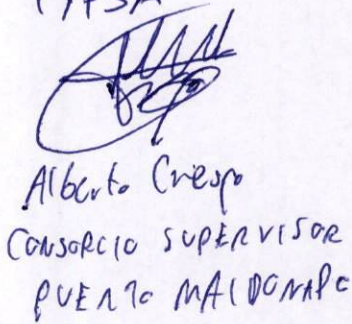 TYPSA
Alberto Crespo
CONSORCIO SUPERVISOR
PUERTO MALDONADO